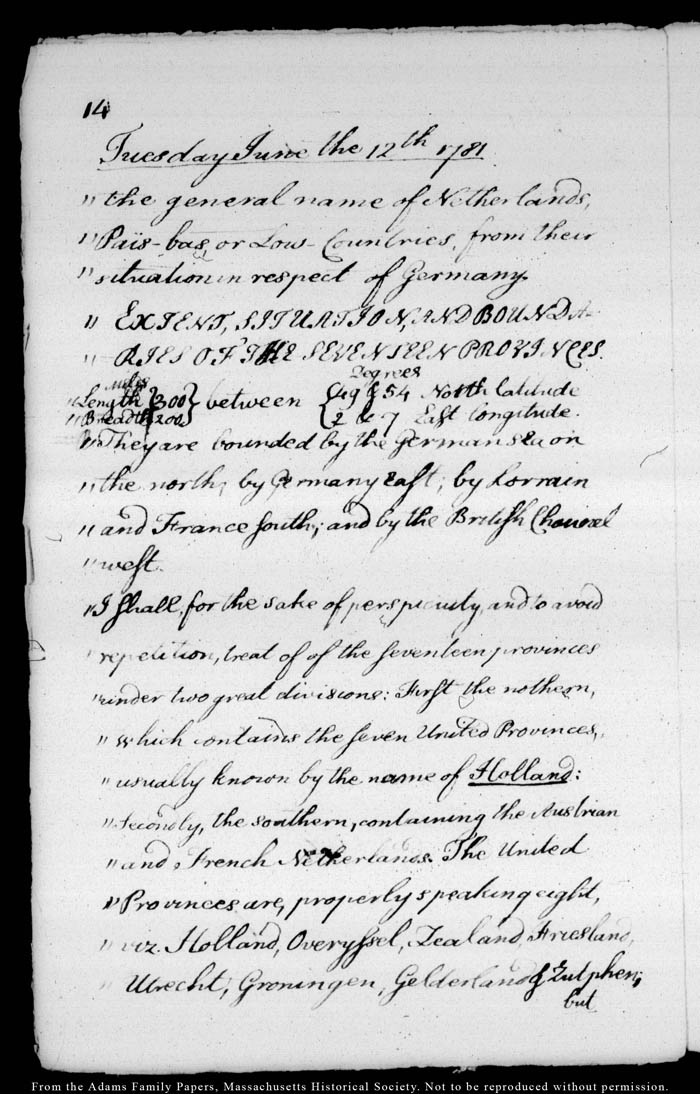 14
Tuesday June the 12th 1781.
" the general name of Netherlands,
" Païs-bas, or Low-Countries, from their
" situation in respect of Germany.
" EXTENT, SITUATION, AND BOUNDA-
" RIES OF THE SEVENTEEN PROVINCES.
Miles Degrees
" Length 300 } between { 49 & 54 North latitude
" Breadth 200 } { 2 & 7 East longitude.
" They are bounded by the German sea on
" the north, by Germany East; by Lorrain
" and France South; and by the British Channel
" west.
" I Shall, for the sake of perspicuity, and to avoid
" repetition, treat of of the seventeen provinces
" under two great divisions: First the nothern,
" which contains the seven United Provinces,
" usually known by the name of Holland:
" Secondly, the southern, containing the Austrian
" and French Netherlands. The United
" Provinces are, properly speaking eight,
" viz. Holland, Overyssel, Zealand, Friesland,
" Utrecht, Groningen, Gelderland & Zutphen;
but
From the Adams Family Papers, Massachusetts Historical Society. Not to be reproduced without permission.